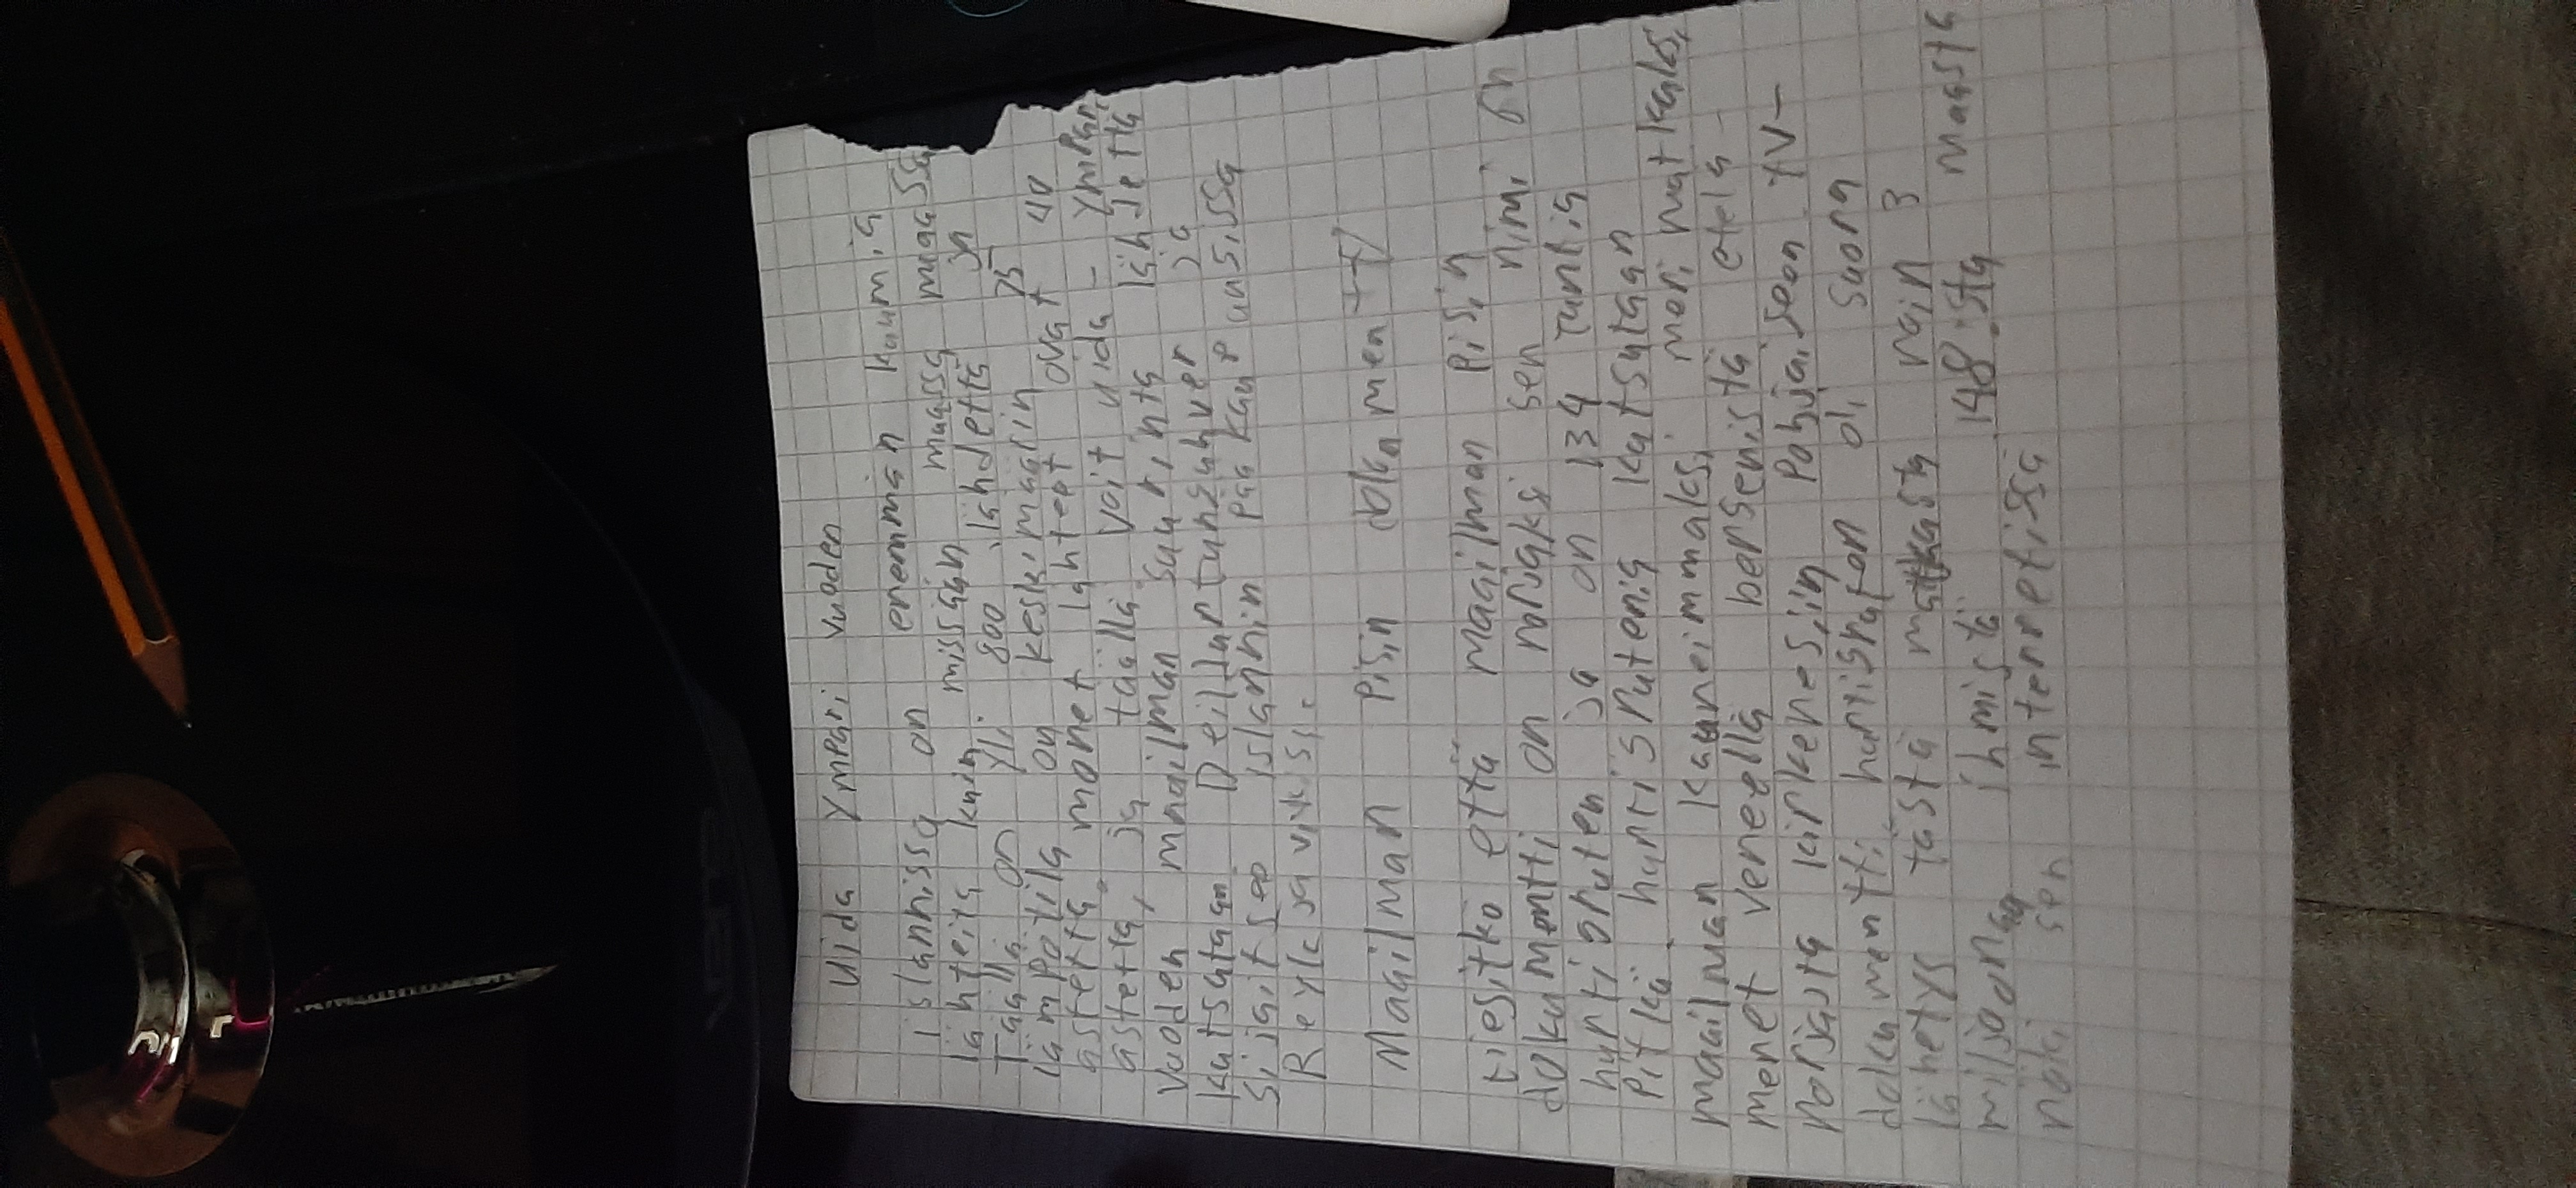 Uida Ympäri vuoden
Islannissa on enemmän kuumia
lähteitä kuin missään muassa maassa
Täällä on yli 800 lähdettä ja
lämpötila on keskimäärin 75
astetta. monet lähteet ovat 40
astetta, ja täällä voit uida - ympäri
vuoden maailman suurinta lähdettä
katsotaan Deildartunguhver ja
sijaitsee islannin pääkaupuasissa
Reykjavikssi.
Maailman Pisin dokumentty
tiesitkö että maailman Pisin
dokumentti on norjaksi sen nimi on
hurtigruten ja on 134 tuntia
Pitkä. hurtisrutenia katsotaan
maailman kauneimmaksi merimatkaksi,
menet veneellä bergenistä etelä -
norjasta kirkenesiin Pohjoiseen. tv-
dokumentti hurtigruten oli suora
lähetys tästä matkasta näin 3
miljoonaa ihmistä 148:sta maasta
näki sen internetissä